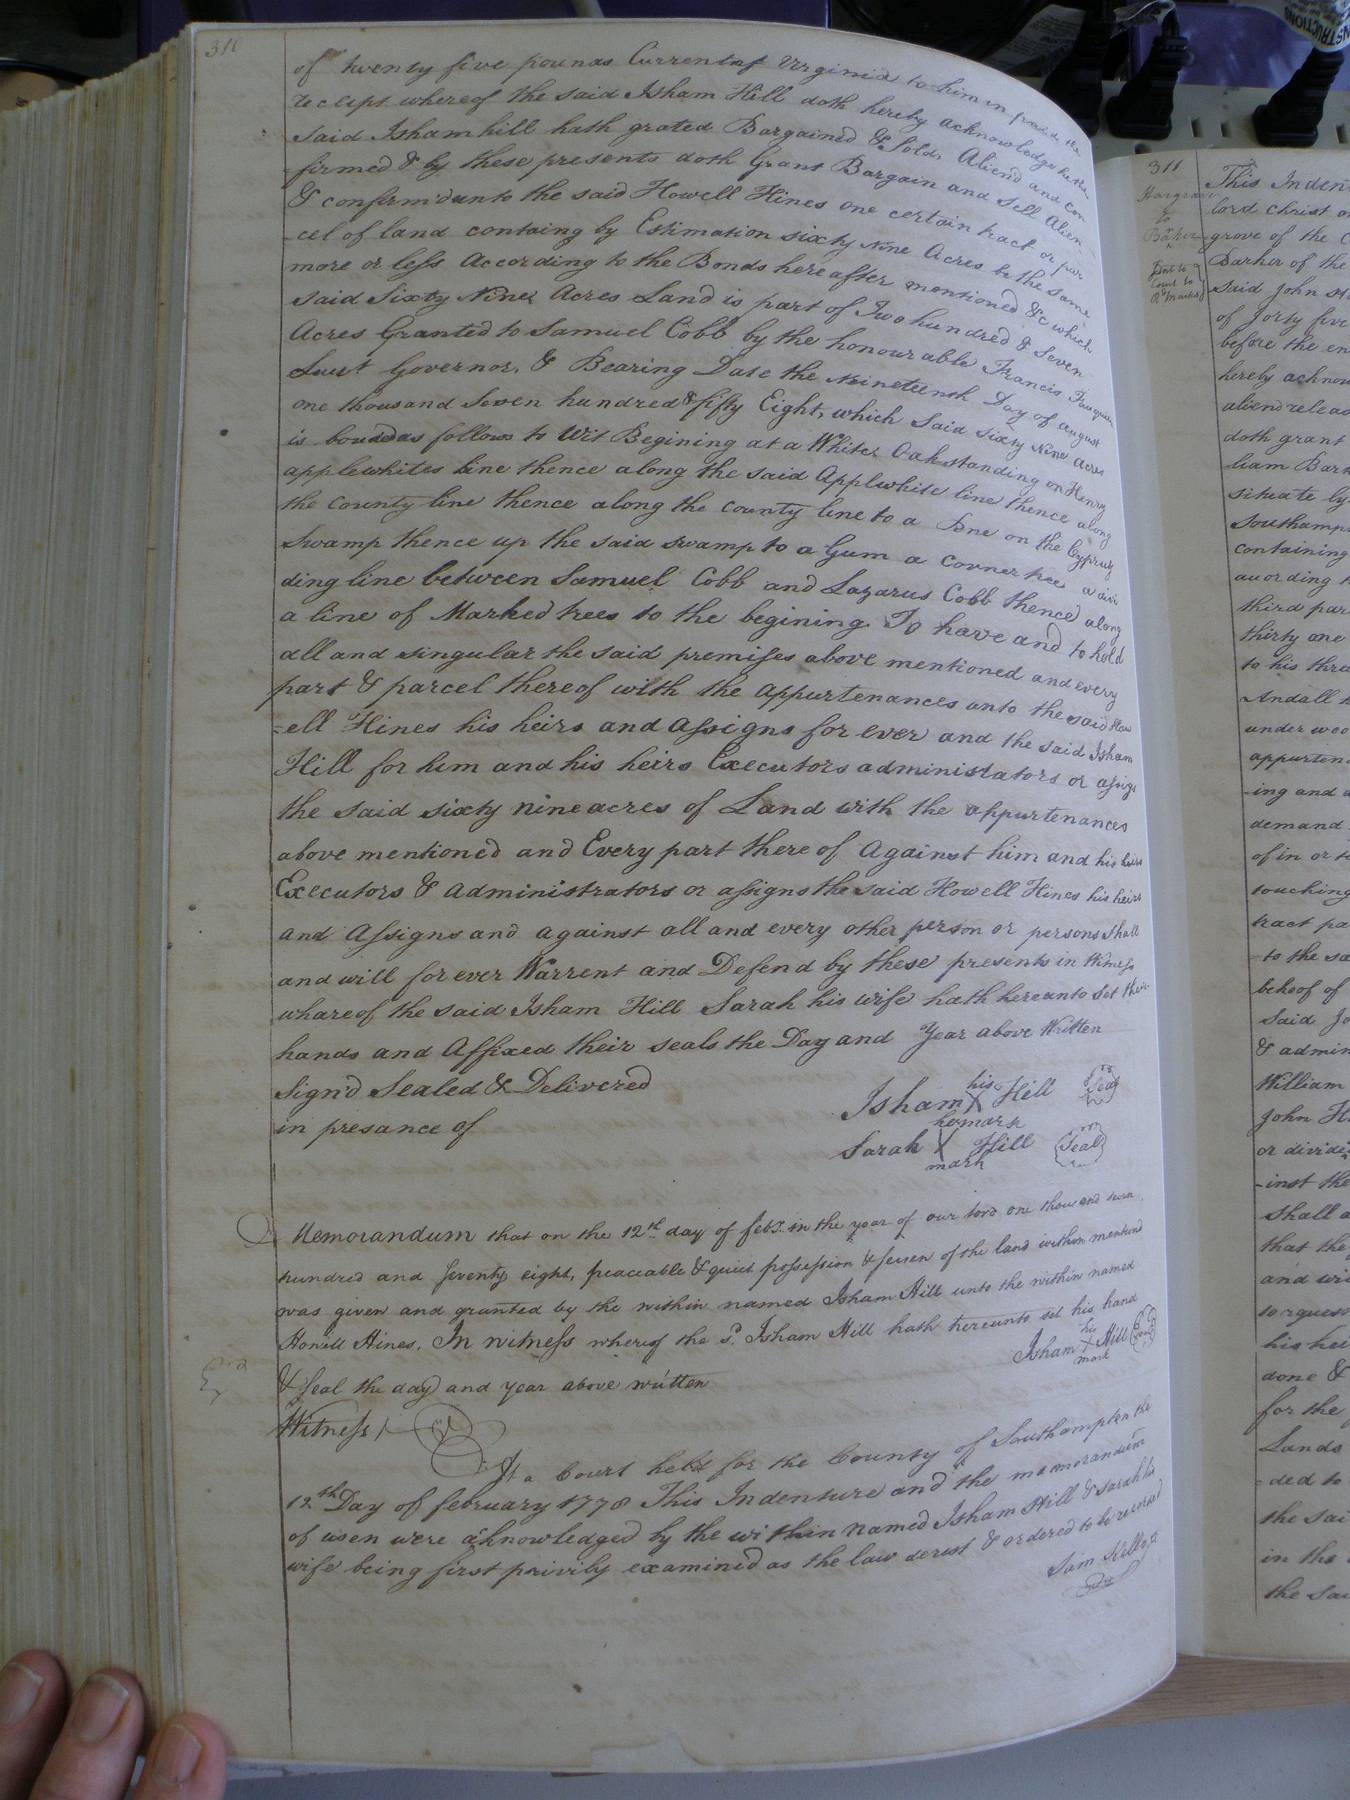 310
of twenty five pounds Current of Virginia to him in paid the
receipt whereof the said Isham Hill doth hereby acknowledge he the
said Isham hill hath grated Bargained & Sold, Aliend and Con
-firmed & by these presents doth Grant Bargain and Sell Alien
& confirm unto the said Howell Hines one certain tract or par
-cel of land containg by Estimation sixty Nine Acres be the same
more or less According to the Bonds hereafter mentioned &c which
said Sixty Nine Acres Land is part of Two hundred & Seven
Acres Granted to Samuel Cobb by the honourable Francis Fauquier
Luut Governor, & Bearing Date the Nineteenth Day of august
one thousand Seven hundred & fifty Eight, which Said Sixty Nine Acres
is boudd as follows to Wit Begining at a White Oak standing on Henry
applewhites line thence along the said Applwhite line thence along
the County line thence along the county line to a Pine on the Cyprus
Swamp thence up the said swamp to a Gum a Corner tree a divi
ding line between Samuel Cobb and Lazarus Cobb thence along
a line of Marked trees to the begining To have and to hold
all and singular the said premises above mentioned and every
part & parcel thereof with the appurtenances unto the said How
-ell Hines his heirs and assigns for ever and the said Isham
Hill for him and his heirs Executors administators or assigs
the said sixty nine acres of Land with the appurtenances
above mentioned and Every part there of Against him and his heirs
Executors & administrators or assigns the said Howell Hines his heirs
and Assigns and against all and every other person or persons shall
and will for ever Warrent and Defend by these presents in Witness
whareof the said Isham Hill Sarah his wife hath hereunto Set their
hands and Affixed their seals the Day and Year above Written
Sign'd Sealed & Delivered
in presance of
Isham his X Hill Seal
her mark
Sarah X Hill Seal
mark
Memorandum that on the 12th day of feby in the year of our lord one thousand seven
hundred and Seventy eight, peaceable & quiet possession & seisen of the land within mentiond
was given and granted by the within named Isham Hill unto the within named
Howell Hines, In witness whereof the sd. Isham Hill hath hereunto set his hand
Isham his X mark Hill Seal
& Seal the day and year above written
Witness
At a Court held for the County of Southampton the
12th Day of february 1778 This Indenture and the memorandum
of usen were acknowledged by the within named Isham Hill & Sarah his
wife being first privily examined as the law derest & ordered to be recorded
Sam Kello
311
Hargrave
to
Barker
This Inden
lord christ
grove of the C
Barker of the
said John
of forty five
before the en
hereby acknow
aliend releas
doth grant
liam Bark
situate by
Southamp
containing
according
third par
thirty one
to his
And all
under woo
appurten
-ing and
demand
of in or
touching
tract pa
to the sa
behoof of
Said Jo
& admin
William
John H
or divide
-inst the
shall a
that the
and wi
to
his hei
done &
for the
Lands
-ded to
the sai
in the
the sai